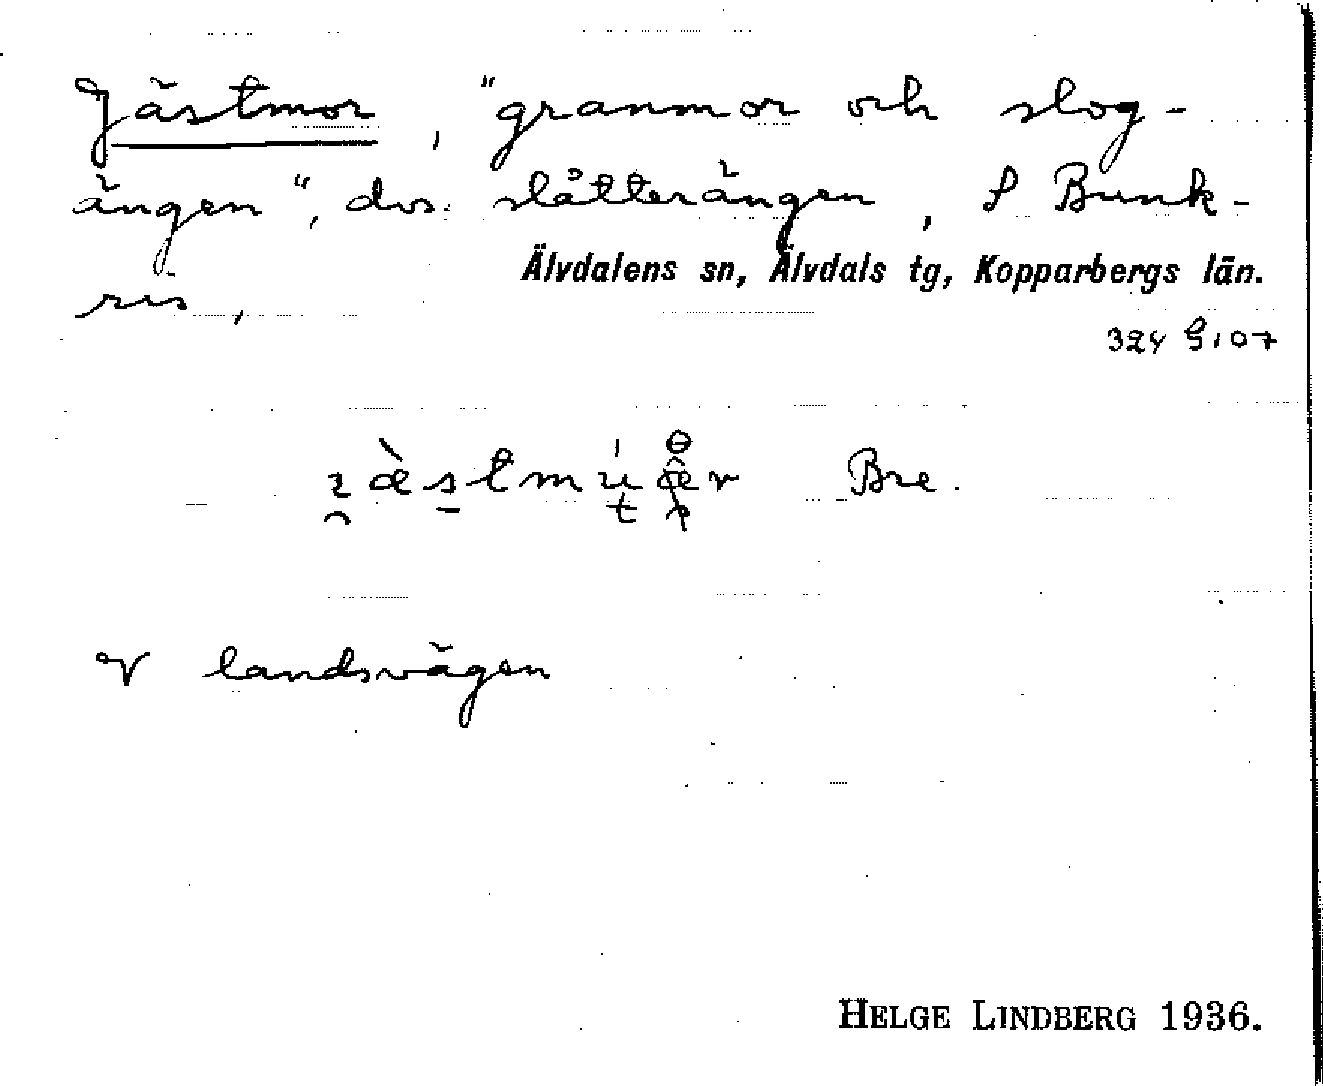 Jästmor, "granmor och slog-
ängen", dvs. slåtterängen, S Bunk-
Älvdalens sn, Älvdals tg, Kopparbergs län.
ris,
324 G 107
Bre.
V landsvägen
HELGE LINDBERG 1936.